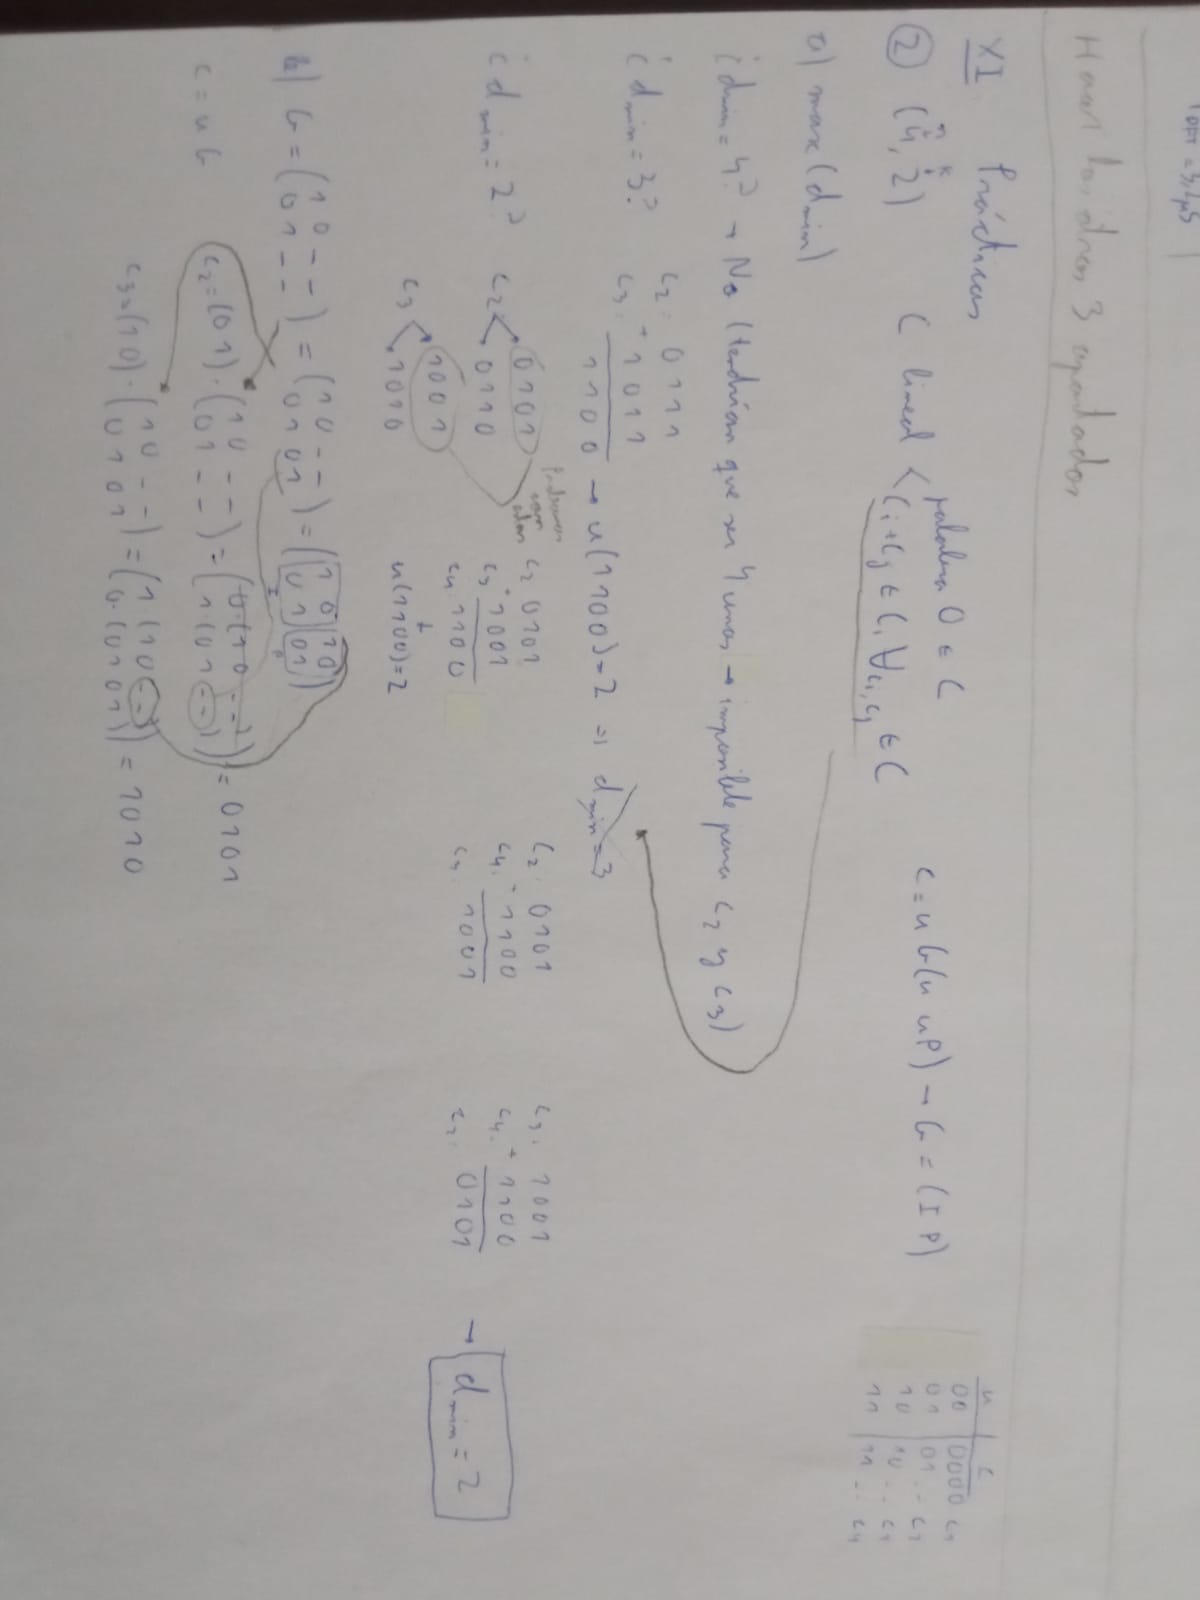 T DFT = 3,2μS
Hacer los otros 3 apartados
XI Prácticas
u | c
00 | 0000 c1
01 | 01.. c2
10 | 10.. c3
11 | 11.. c4
② (4, 2) n k
C lineal < palabra 0 ∈ C
ci+cj ∈ C, ∀ci,cj ∈ C
c = u G(u uP) → G = (I P)
a) max(dmin)
¿dmin=4? → No (tendrían que ser 4 unos → imposible para c2 y c3)
¿dmin=3? c2: 0111
c3: + 1011
1100 → w(1100)=2 ⇒ dmin=3
¿dmin=2? c2 < 0101
0110
c3 < 1001
1010
Probamos con estos
c2 0101
c3 + 1001
c4 1100
w(1100)=2
c2: 0101
c4: + 1100
c3: 1001
c3: 1001
c4: + 1100
c2: 0101
→ dmin = 2
b) G = (1 0 - - / 0 1 - -) = (1 0 - - / 0 1 0 1) = (1 0 1 0 / 0 1 0 1)
I P
c = u G
c2 = (0 1) · (1 0 - - / 0 1 - -) = (0·(1 0 - -) / 1·(0 1 - -)) = 0101
c3 = (1 0) · (1 0 - - / 0 1 0 1) = (1·(1 0 - -) / 0·(0 1 0 1)) = 1010